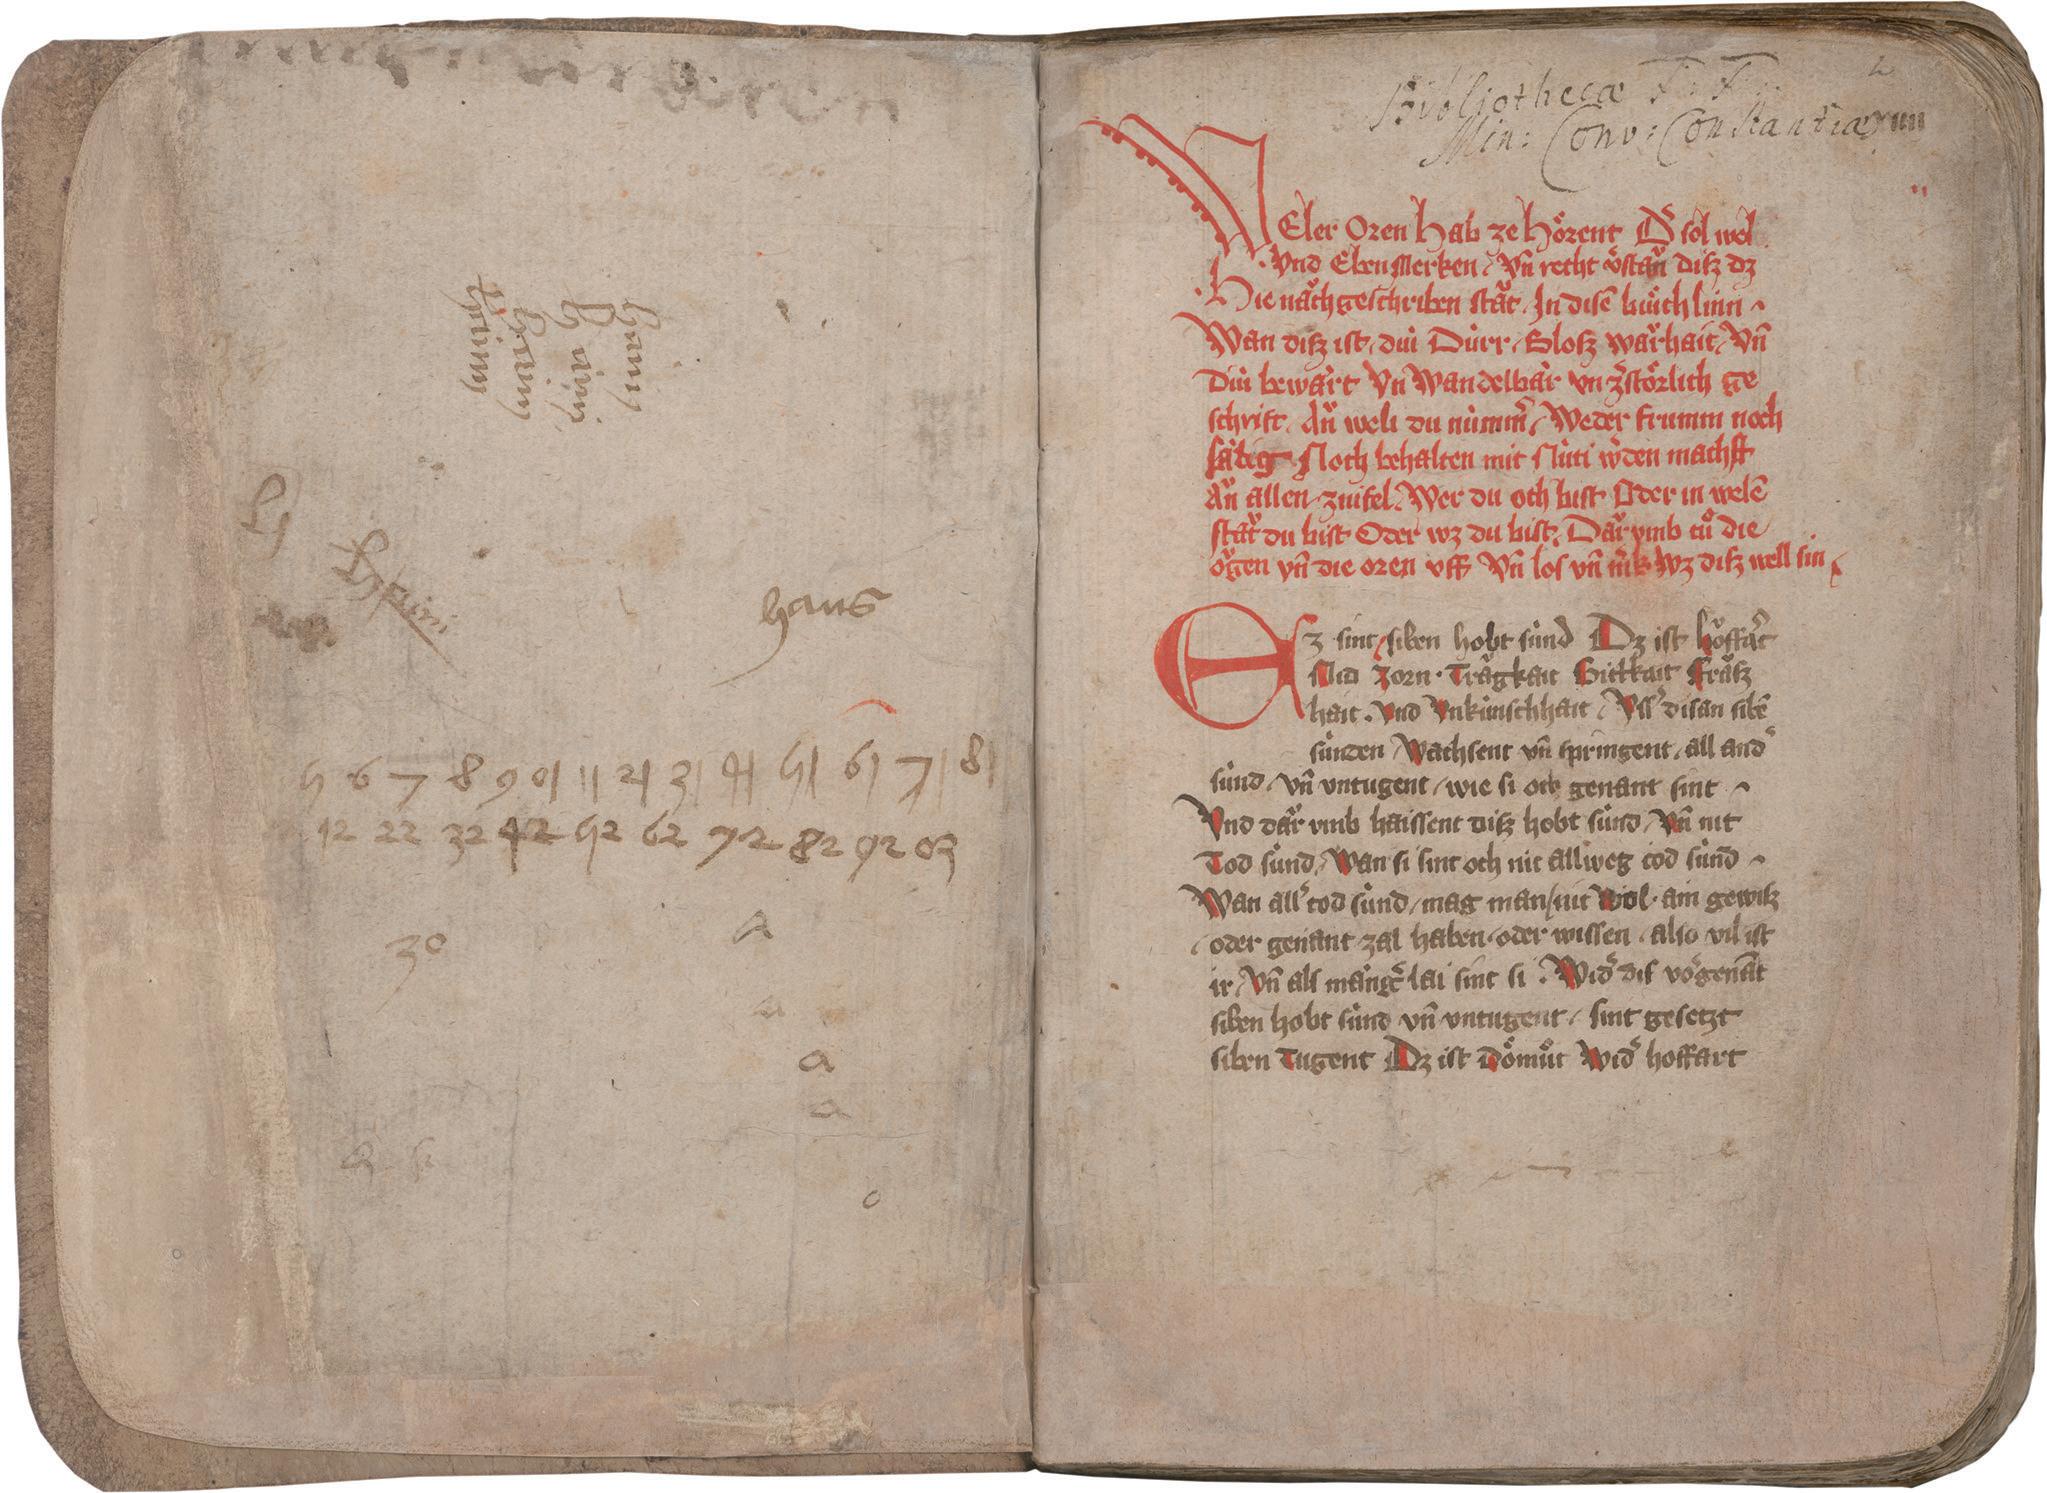 hans
5 6 7 8 9 01 11 21 31 41 51 61 71 81
12 22 32 42 52 62 72 82 92 03
30
a
a
a
a
Bibliothecæ F: F:
Min: Conv: Constantiæ
Weler Oren hab ze hörent Dˀ sol wol
Vnd Eben Merken / Vn̄ recht v̾stan̄ disz dz
Hie nauchgeschriben stat In disē buͤchlinn
Wan disz ist / diu Dürr / Blosz warhait / Vn̄
Diu bewart Vn̄ Wandelbar vn zˀstörlich ge
schrift / An̄ weli du nùmmˀ / Weder frumm noch
sälig Noch behalten mit Nùti wˀden machst
An̄ allen zwifel / Wer du och bist Oder in welē
stat du bist Oder wz du bist / Dar vmb tuͦ die
ogen vn̄ die oren vff Vn̄ los vn̄ mˀk wz disz well sin
Ez sint siben hobt sùnd Dz ist hoffart
Nid Zorn · Trägkait Gitkait Fräsz
hait · Vnd Vnkùnschhait / Vssˀ disan sibē
sùnden / Wachsent vn̄ springent / all andˀ
sùnd / vn̄ vntugent / wie si och genant sint
Vnd dar vmb haissent disz hobt sùnd / Vn̄ nit
Tod sùnd / Wan si sint och nit allweg tod sùnd
Wan allˀ tod sùnd / mag man / nit wol · ain gewisz
oder genant zal haben / oder wissen / also vil ist
ir / Vn̄ als mangˀ lai sint si · Widˀ dis vorgenāt
siben hobt sùnd vn̄ vntugent / sint gesetzt
siben Tugent Dz ist Dömuͤt Widˀ hoffart